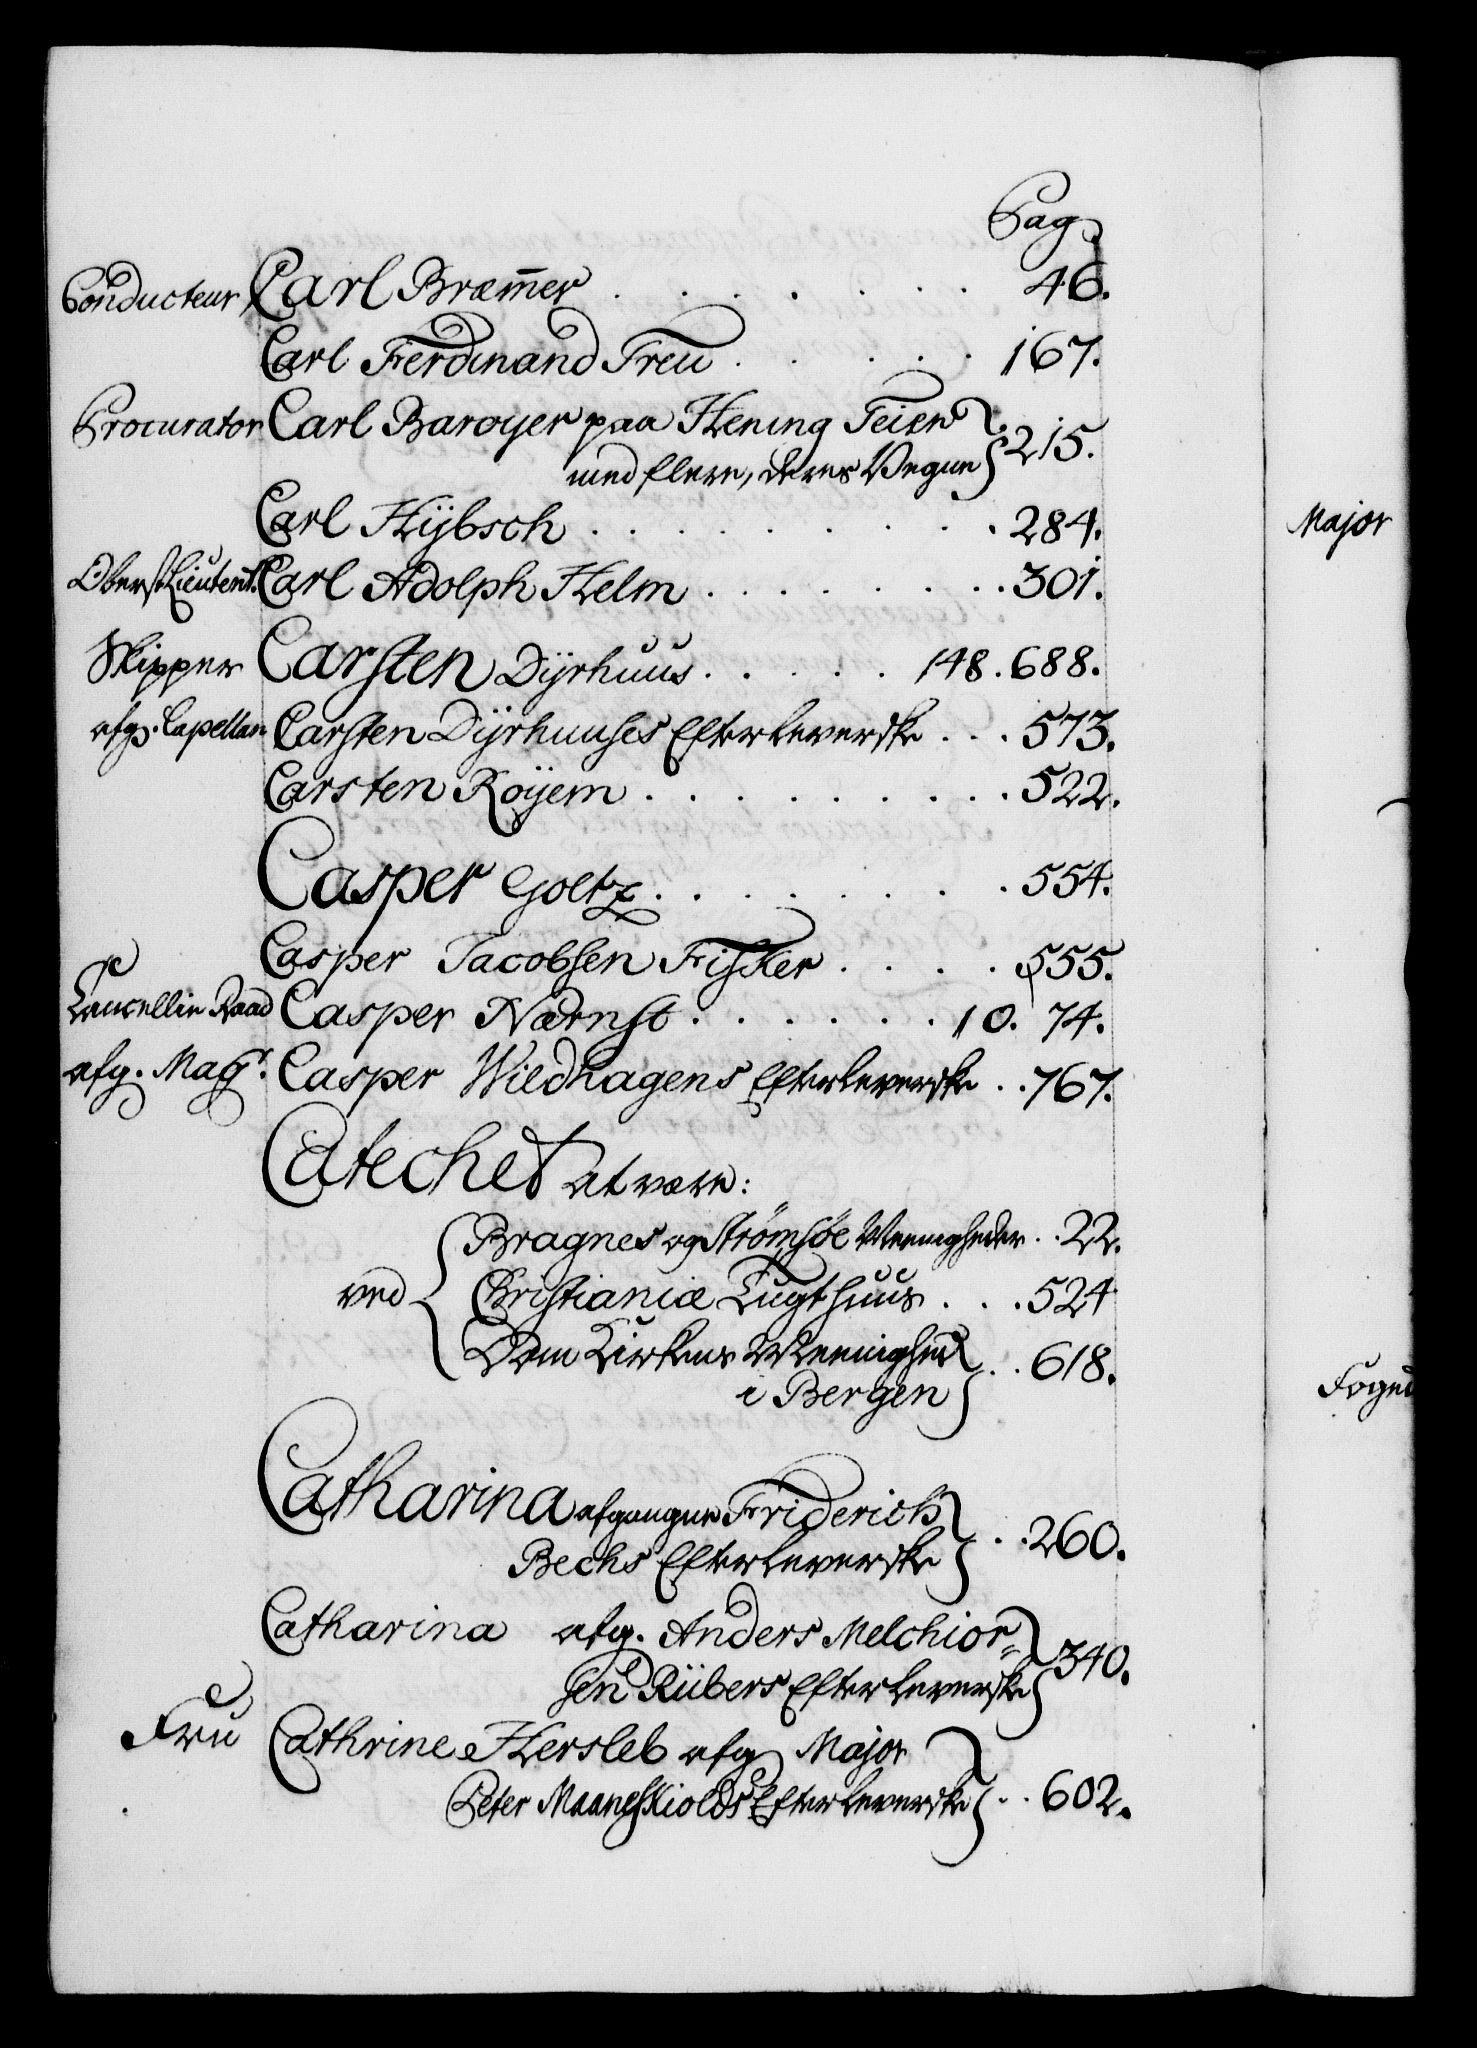 Pag.
Conducteur Carl Bræm̅er . . . . . . . 46.
Carl Ferdinand Treu . . . . . 167.
Procurator Carl Baroyer paa Hening Teier
med flere, deres Vegne 215.
Carl Hÿbsch . . . . . . . . 284.
Oberst Lieutent. Carl Adolph Helm . . . . . . . 301.
Skipper Carsten Dÿrhuus . . . . . 148. 688.
afg. Capellan Carsten Dÿrhuuses Efterleverske . . . 573.
Carsten Röÿem . . . . . . . . 522.
Casper Goltz . . . . . . . . 554.
Casper Jacobsen Fisker . . . . 555.
Cancellie Raad Casper Nærnst . . . . . . 10. 74.
afg. Magr. Casper Wildhagens Efterleverske . . 767.
Catechet at være:
Bragnes og Strömsöe Meenigheder . . 22.
ved Christianiæ Tugthuus . . . 524
Dom Kirkens Meenighed
i Bergen . . 618.
Catharina afgangne Friderich
Bechs Efterleverske . . 260.
Catharina afg. Anders Melchior-
sen Rübers Efterleverske 340.
Fru Cathrine Hersleb afg Major
Peter Maaneskiolds Efterleverske . . 602.
Major
Foged